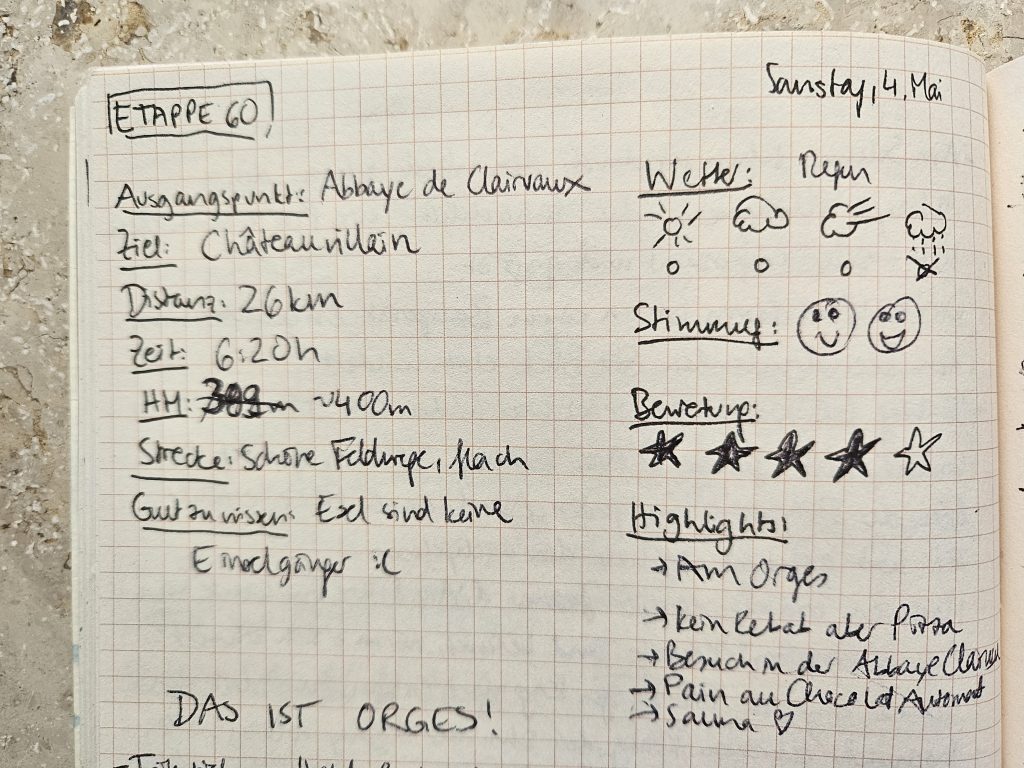 ETAPPE 60
Samstag, 4. Mai
Ausgangspunkt: Abbaye de Clairvaux
Ziel: Châteauvillain
Distanz: 26km
Zeit: 6:20h
HM: ~400m
Strecke: Schöne Feldwege, flach
Gut zu wissen: Esel sind keine
Einzelgänger :(
DAS IST ORGES!
Wetter: Regen
Stimmung:
Bewertung:
Highlights:
→ Am Orges
→ kein Kebab aber Pizza
→ Besuch in der Abbaye Clairvaux
→ Pain au Chocolat Automat
→ Sauna ♡